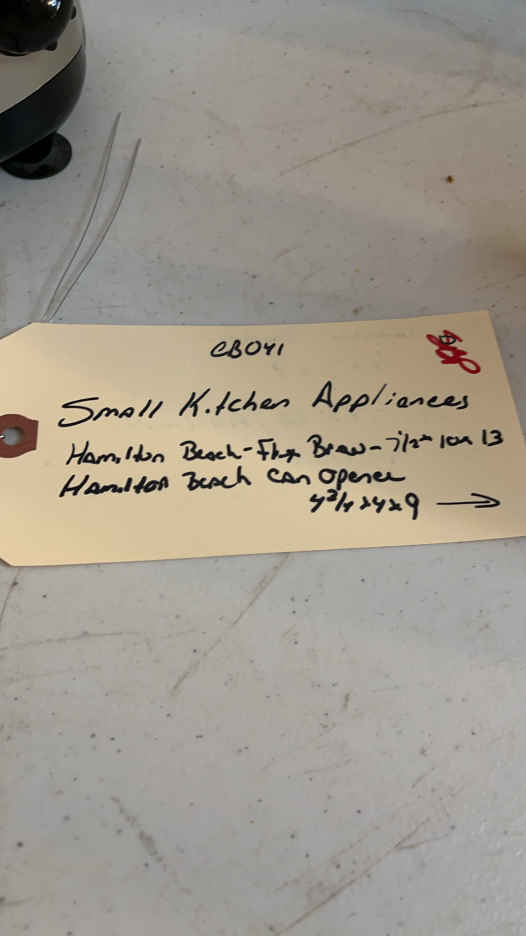 CB041
Small Kitchen Appliances
Hamilton Beach - Flex Brew - 7 1/2 x 10 x 13
Hamilton Beach Can Opener
4 3/4 x 4 x 9 →